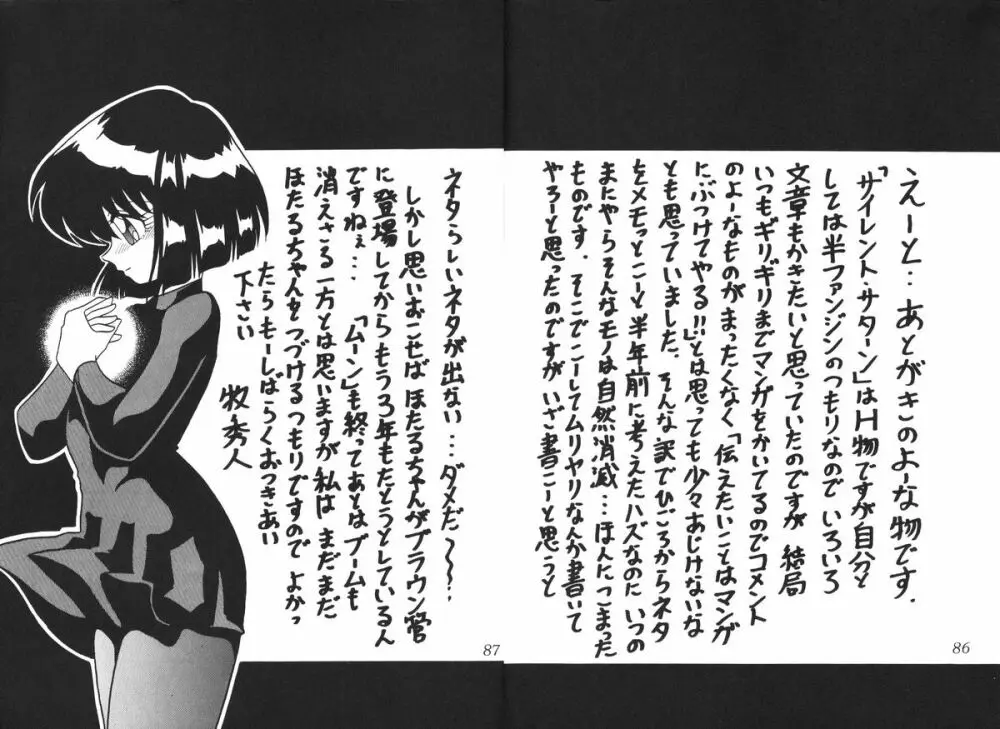 えーと…あとがきのよーな物です.
「サイレント・サターン」はH物ですが自分と
しては半ファンジンのつもりなので いろいろ
文章もかきたいと思っていたのですが 結局
いつもギリギリまでマンガをかいてるのでコメント
のよーなものがまったくなく「伝えたいことはマンガ
にぶつけてやる!!」とは思っても少々あじけないな
とも思っていました. そんな訳でひごろからネタ
をメモっとこーと半年前に考えたハズなのに いつの
まにやらそんなモノは自然消滅…ほんにっこまった
ものです. そこでこーしてムリヤリなんか書いて
やろーと思ったのですが いざ書こーと思うと
86
ネタらしいネタが出ない…ダメだ〜…
しかし思いおこせば ほたるちゃんがブラウン管
に登場してからもう3年もたとうとしているん
ですねぇ… 「ムーン」も終ってあとはブームも
消えさる一方とは思いますが 私は まだまだ
ほたるちゃんをつづけるつもりですので よかっ
たらもーしばらくおつきあい
下さい
牧秀人
87